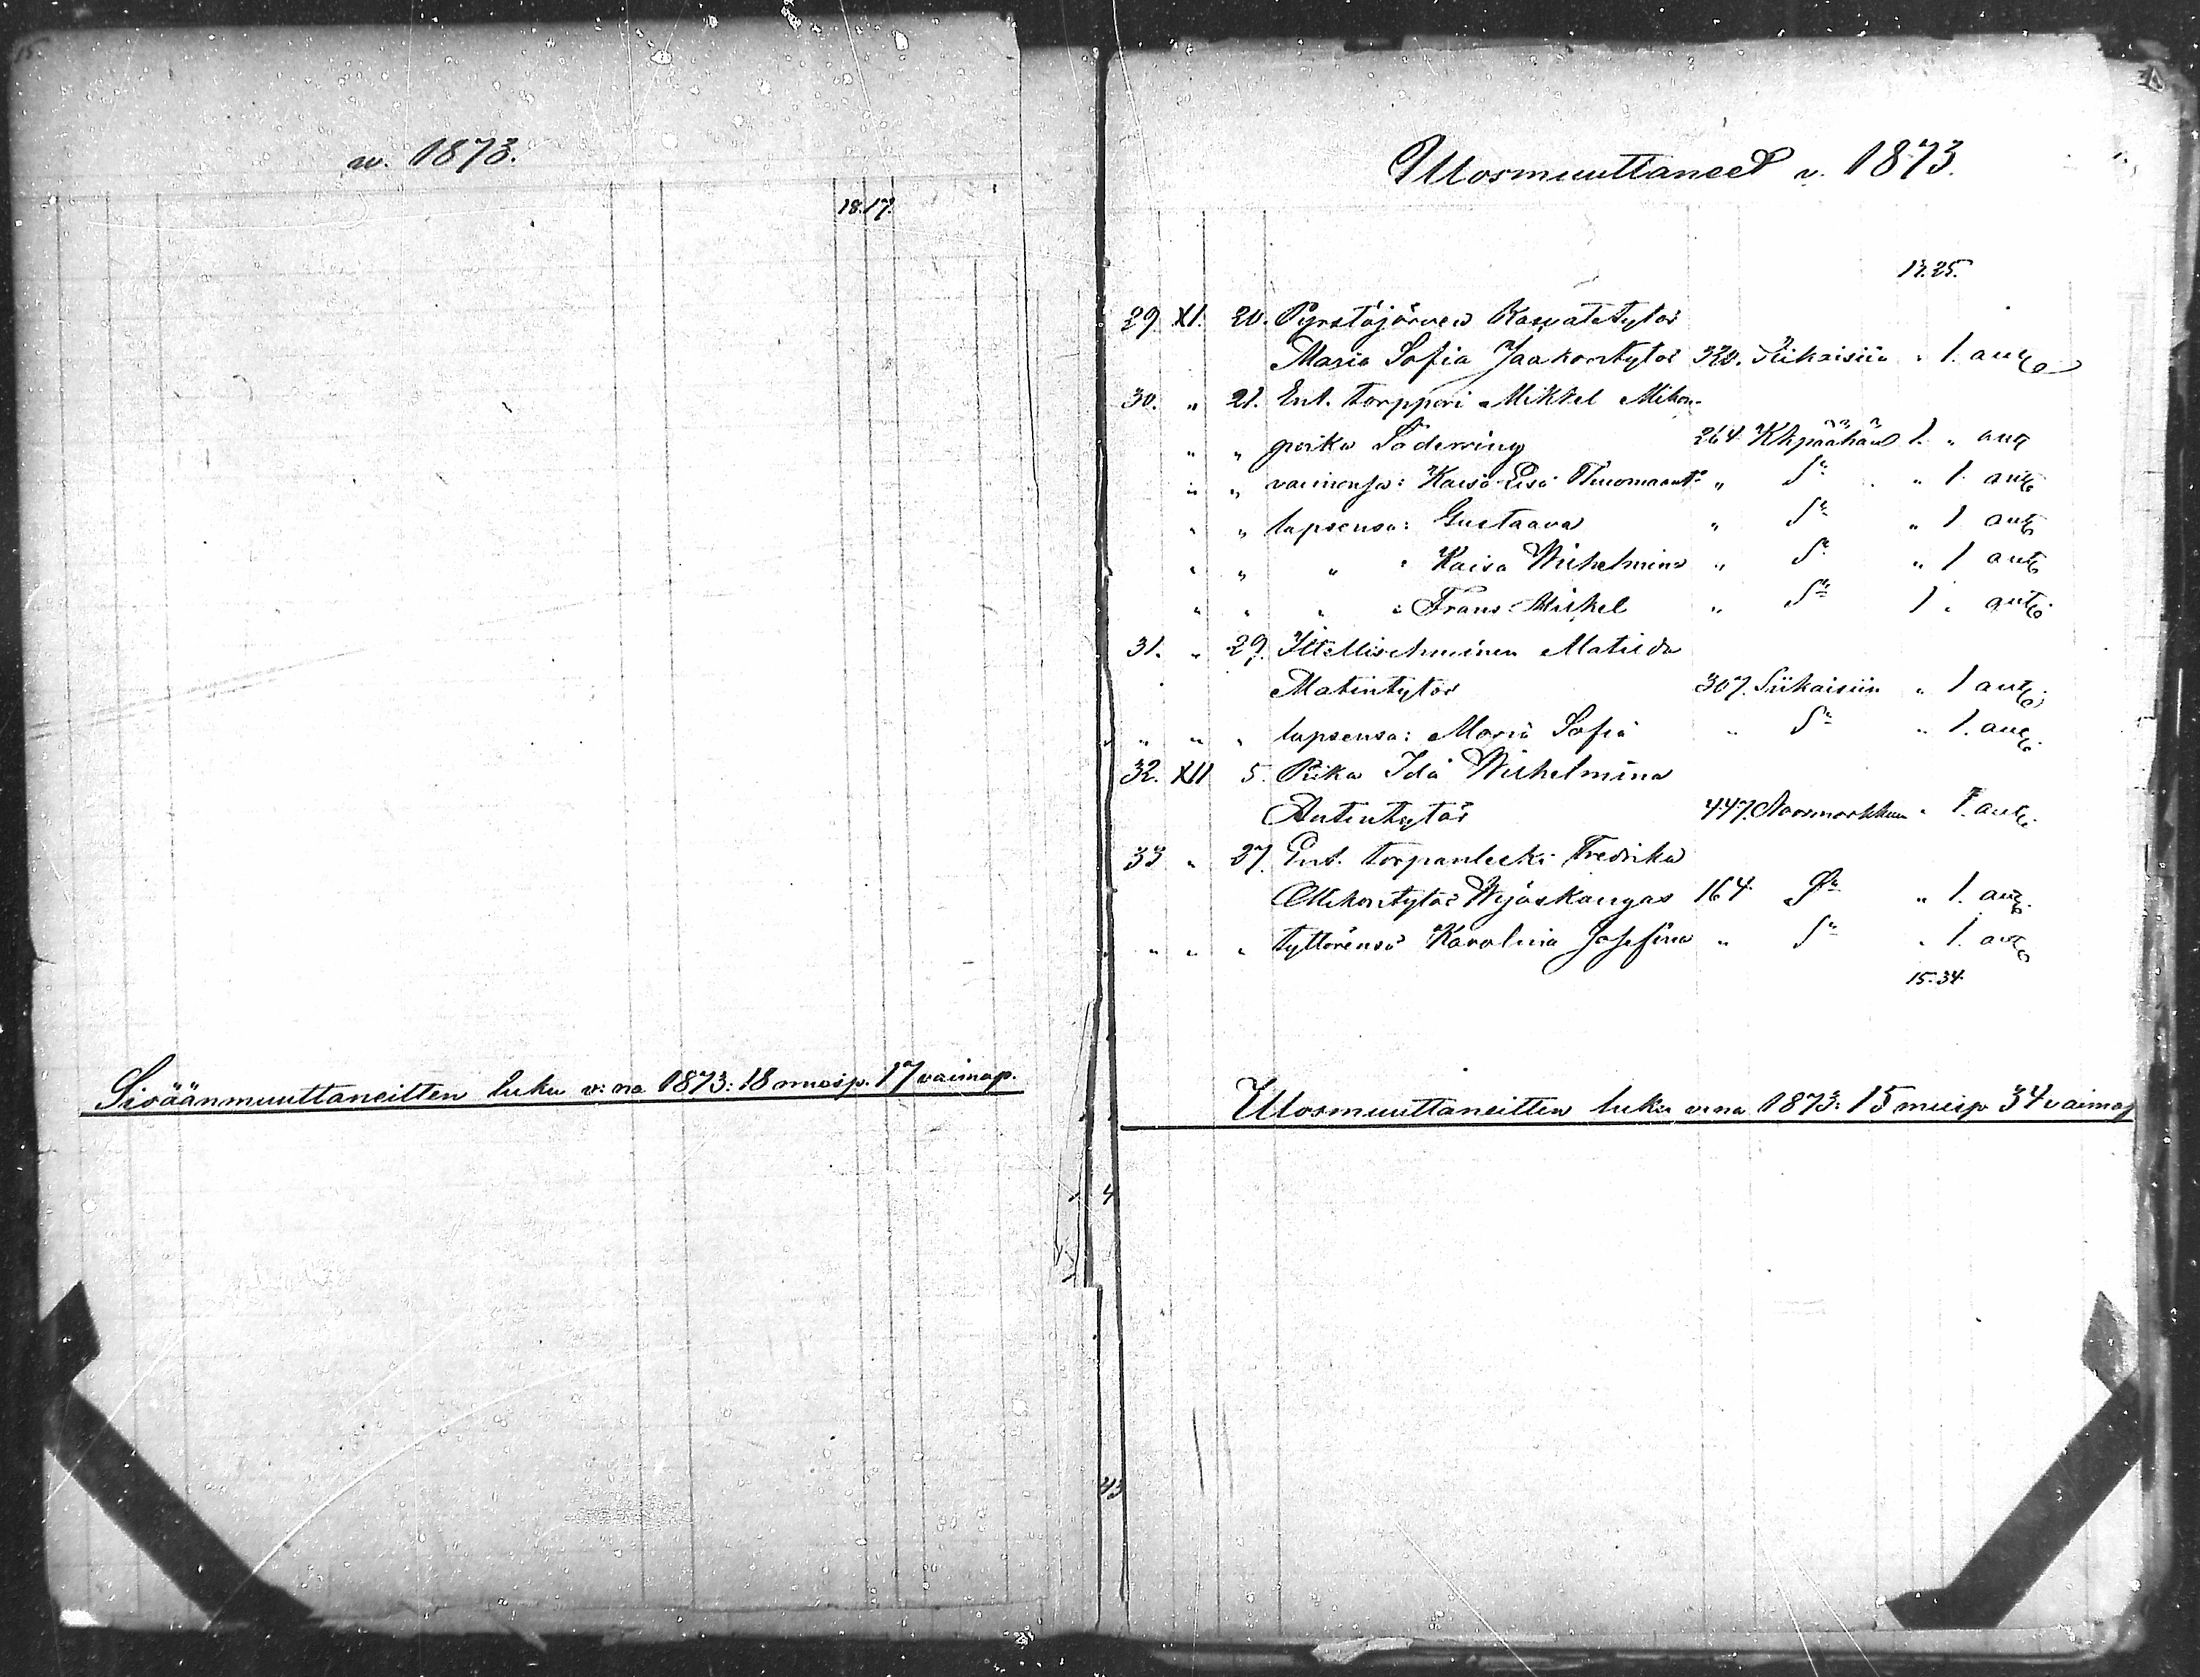 w. 1873.
18. 17.
Sisäänmuuttaneitten luku v:na 1873: 18 miesp. 17 vaimop.
Ulosmuuttaneet v. 1873.
13. 25.
29. XI. 20. Pyrstöjärven Kasvatetytär
Maria Sofia Jaakontytär 320. Siikaisiin " 1.
30. " 21. Ent. torppari Mikkel Mikon-
" " poika Söderring 264 1. "
" " vaimonsa: Kaisa Lisa Tuomaant. " Sn " 1
" " lapsensa: Gustaava " Sn " 1
" " " " Kaisa Wilhelmina " Sn " 1
" " " " Frans Mikkel " Sn 1 "
31. " 29. Itsellisehminen Matilda
Matintytär 307. Siikaisiin " 1
" " " lapsensa: Maria Sofia " Sn " 1.
32. XII 5. Piika Ida Wilhelmina
Antintytär 447. Noormarkkuun " 1.
33 " 27. Ent. torpanleski Fredrika
Mikontytär Wejäskangas 164 Sn " 1.
" " " tyttärensä Karolina Josefina " Sn " 1.
15. 34.
Ulosmuuttaneitten luku v:na 1873: 15 miesp 34 vaimop
4
43